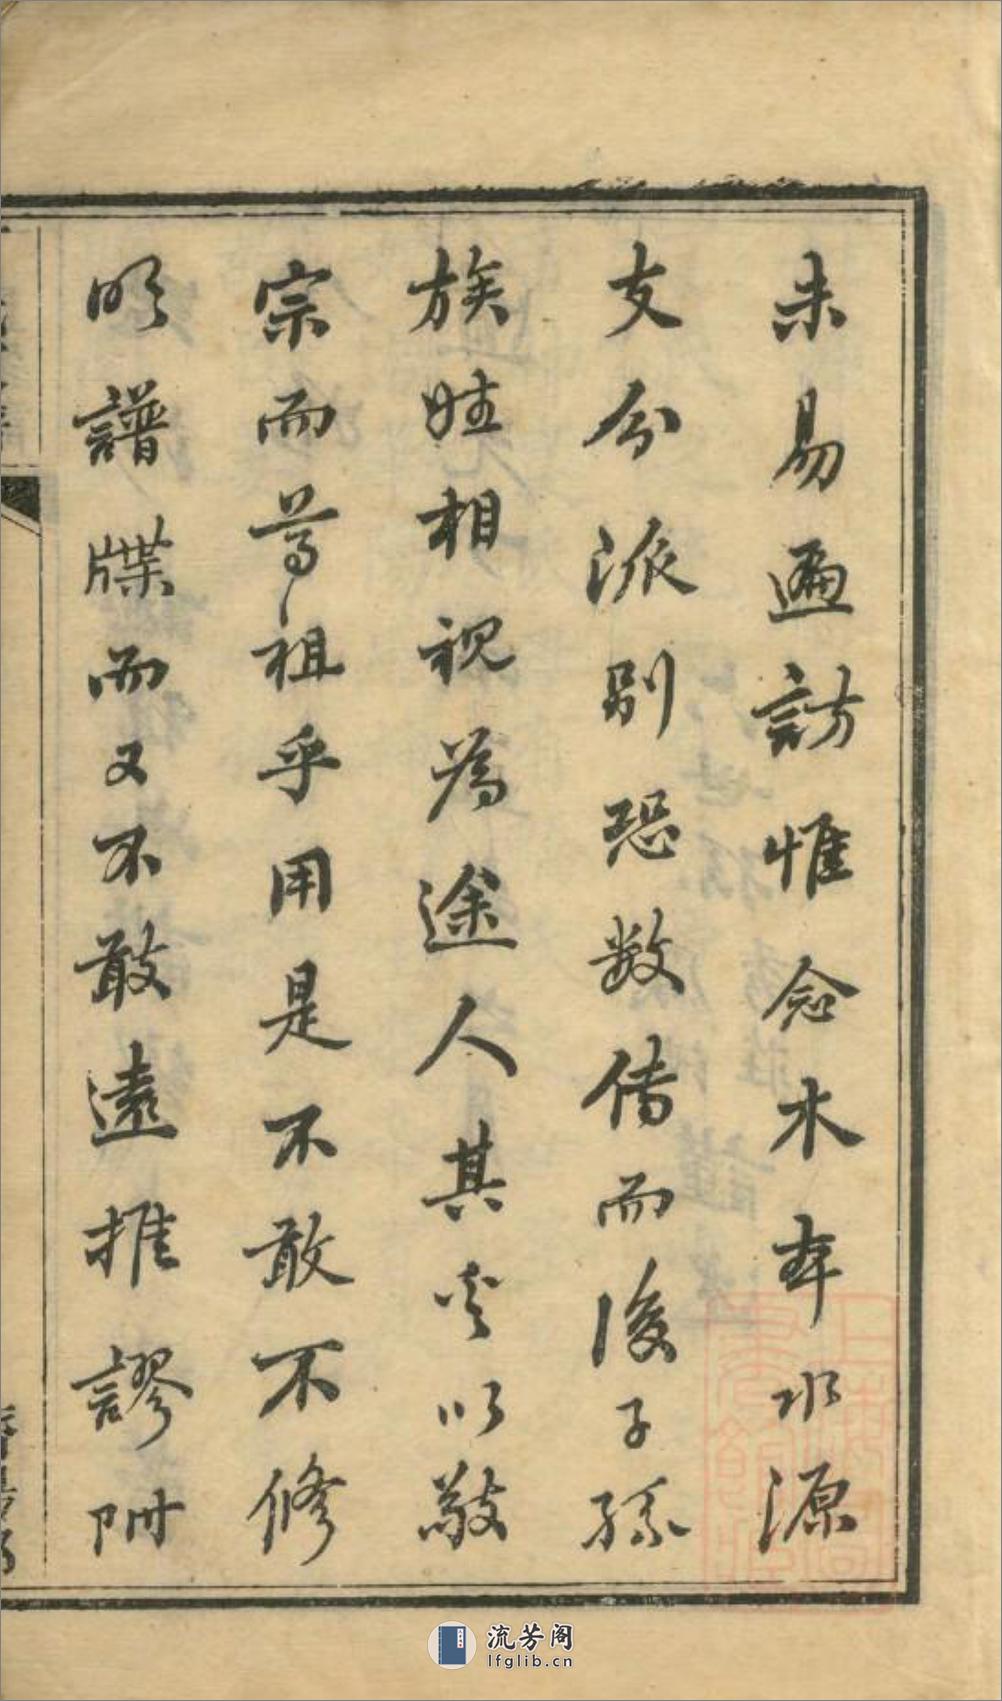 未易遍訪惟念木本水源
支分派別恐数傳而後子孫
族姓相視為途人其奚以敬
宗而尊祖乎用是不敢不修
明譜牒而又不敢遠推謬附
流芳阁
lfglib.cn